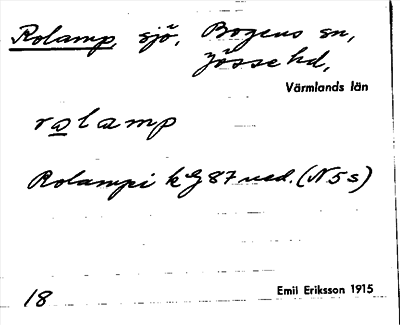 Rolamp, sjö, Bogens sn,
Jösse hd,
Värmlands län
rolamp
Rolampi k G 87 ned. (N 5 s)
18
Emil Eriksson 1915